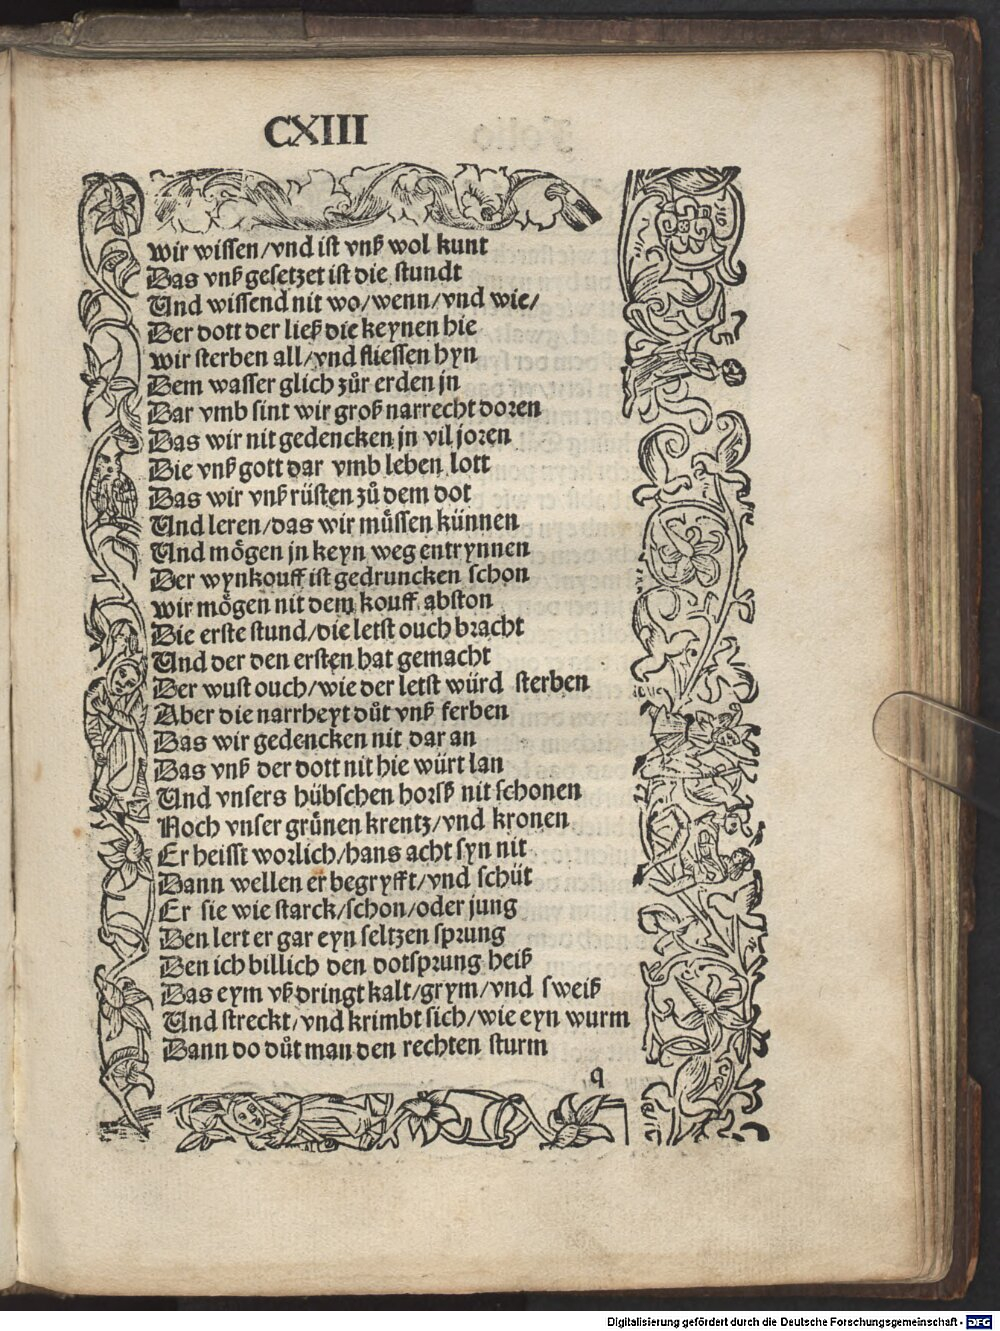 CXIII
wir wissen/vnd ist vnß wol kunt
Das vnß gesetzet ist die stundt
Und wissend nit wo/wenn/vnd wie/
Der dott der ließ die keynen hie
wir sterben all/vnd fliessen hyn
Dem wasser glich zuͦr erden jn
Dar vmb sint wir groß narrecht doren
Das wir nit gedencken jn vil joren
Die vnß gott dar vmb leben lott
Das wir vnß rüsten zuͦ dem dot
Und leren/das wir muͤssen künnen
Und moͤgen jn keyn weg entrynnen
Der wynkouff ist gedruncken schon
wir moͤgen nit dem kouff abston
Die erste stund/die letst ouch bracht
Und der den ersten hat gemacht
Der wust ouch/wie der letst würd sterben
Aber die narrheyt duͦt vnß ferben
Das wir gedencken nit dar an
Das vnß der dott nit hie würt lan
Und vnsers hübschen horsß nit schonen
Noch vnser gruͤnen krentz/vnd kronen
Er heisst worlich/hans acht syn nit
Dann wellen er begryfft/vnd schüt
Er sie wie starck/schon/oder jung
Den lert er gar eyn seltzen sprung
Den ich billich den dotsprung heiß
Das eym vß dringt kalt/grym/vnd sweiß
Und streckt/vnd krimbt sich/wie eyn wurm
Dann do duͦt man den rechten sturm
q
Digitalisierung gefördert durch die Deutsche Forschungsgemeinschaft - DFG